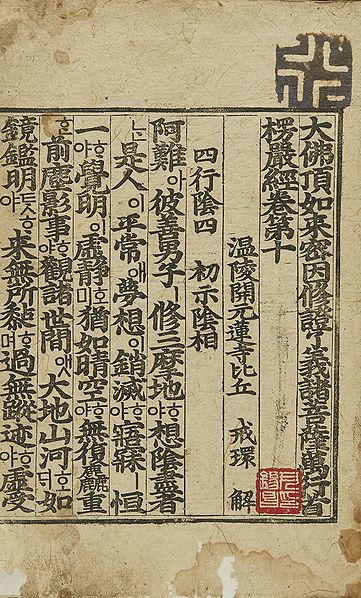 大佛頂如来密因修證了義諸菩薩萬行首
楞嚴經卷第十
温陵開元蓮寺比丘 戒環 解
四行陰四 初示陰相
阿難아彼善男子ㅣ修三摩地ᄒᆞ야想陰盡者
是人이平常애夢想이銷滅ᄒᆞ야寤寐ㅣ恒
一ᄒᆞ야覺明이虛静호미猶如晴空ᄒᆞ야無復麤重
前塵影事ᄒᆞ야觀諸世間앳大地山河호ᄃᆡ如
鏡鑑明ᄐᆞᆺᄒᆞ야来無所黏ᄒᆞ며過無蹤迹ᄒᆞ야虛受